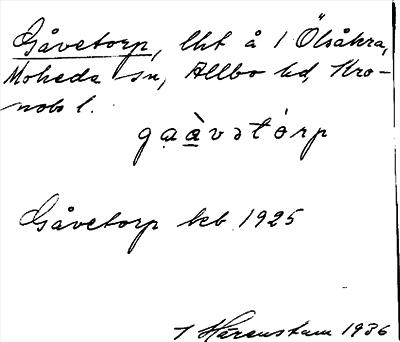 Gåvetorp, lht å 1 Ölsåkra,
Moheda sn, Allbo hd, Kro-
nobs l.
gaàvətórp
Gåvetorp keb 1925
T Harenstam 1936